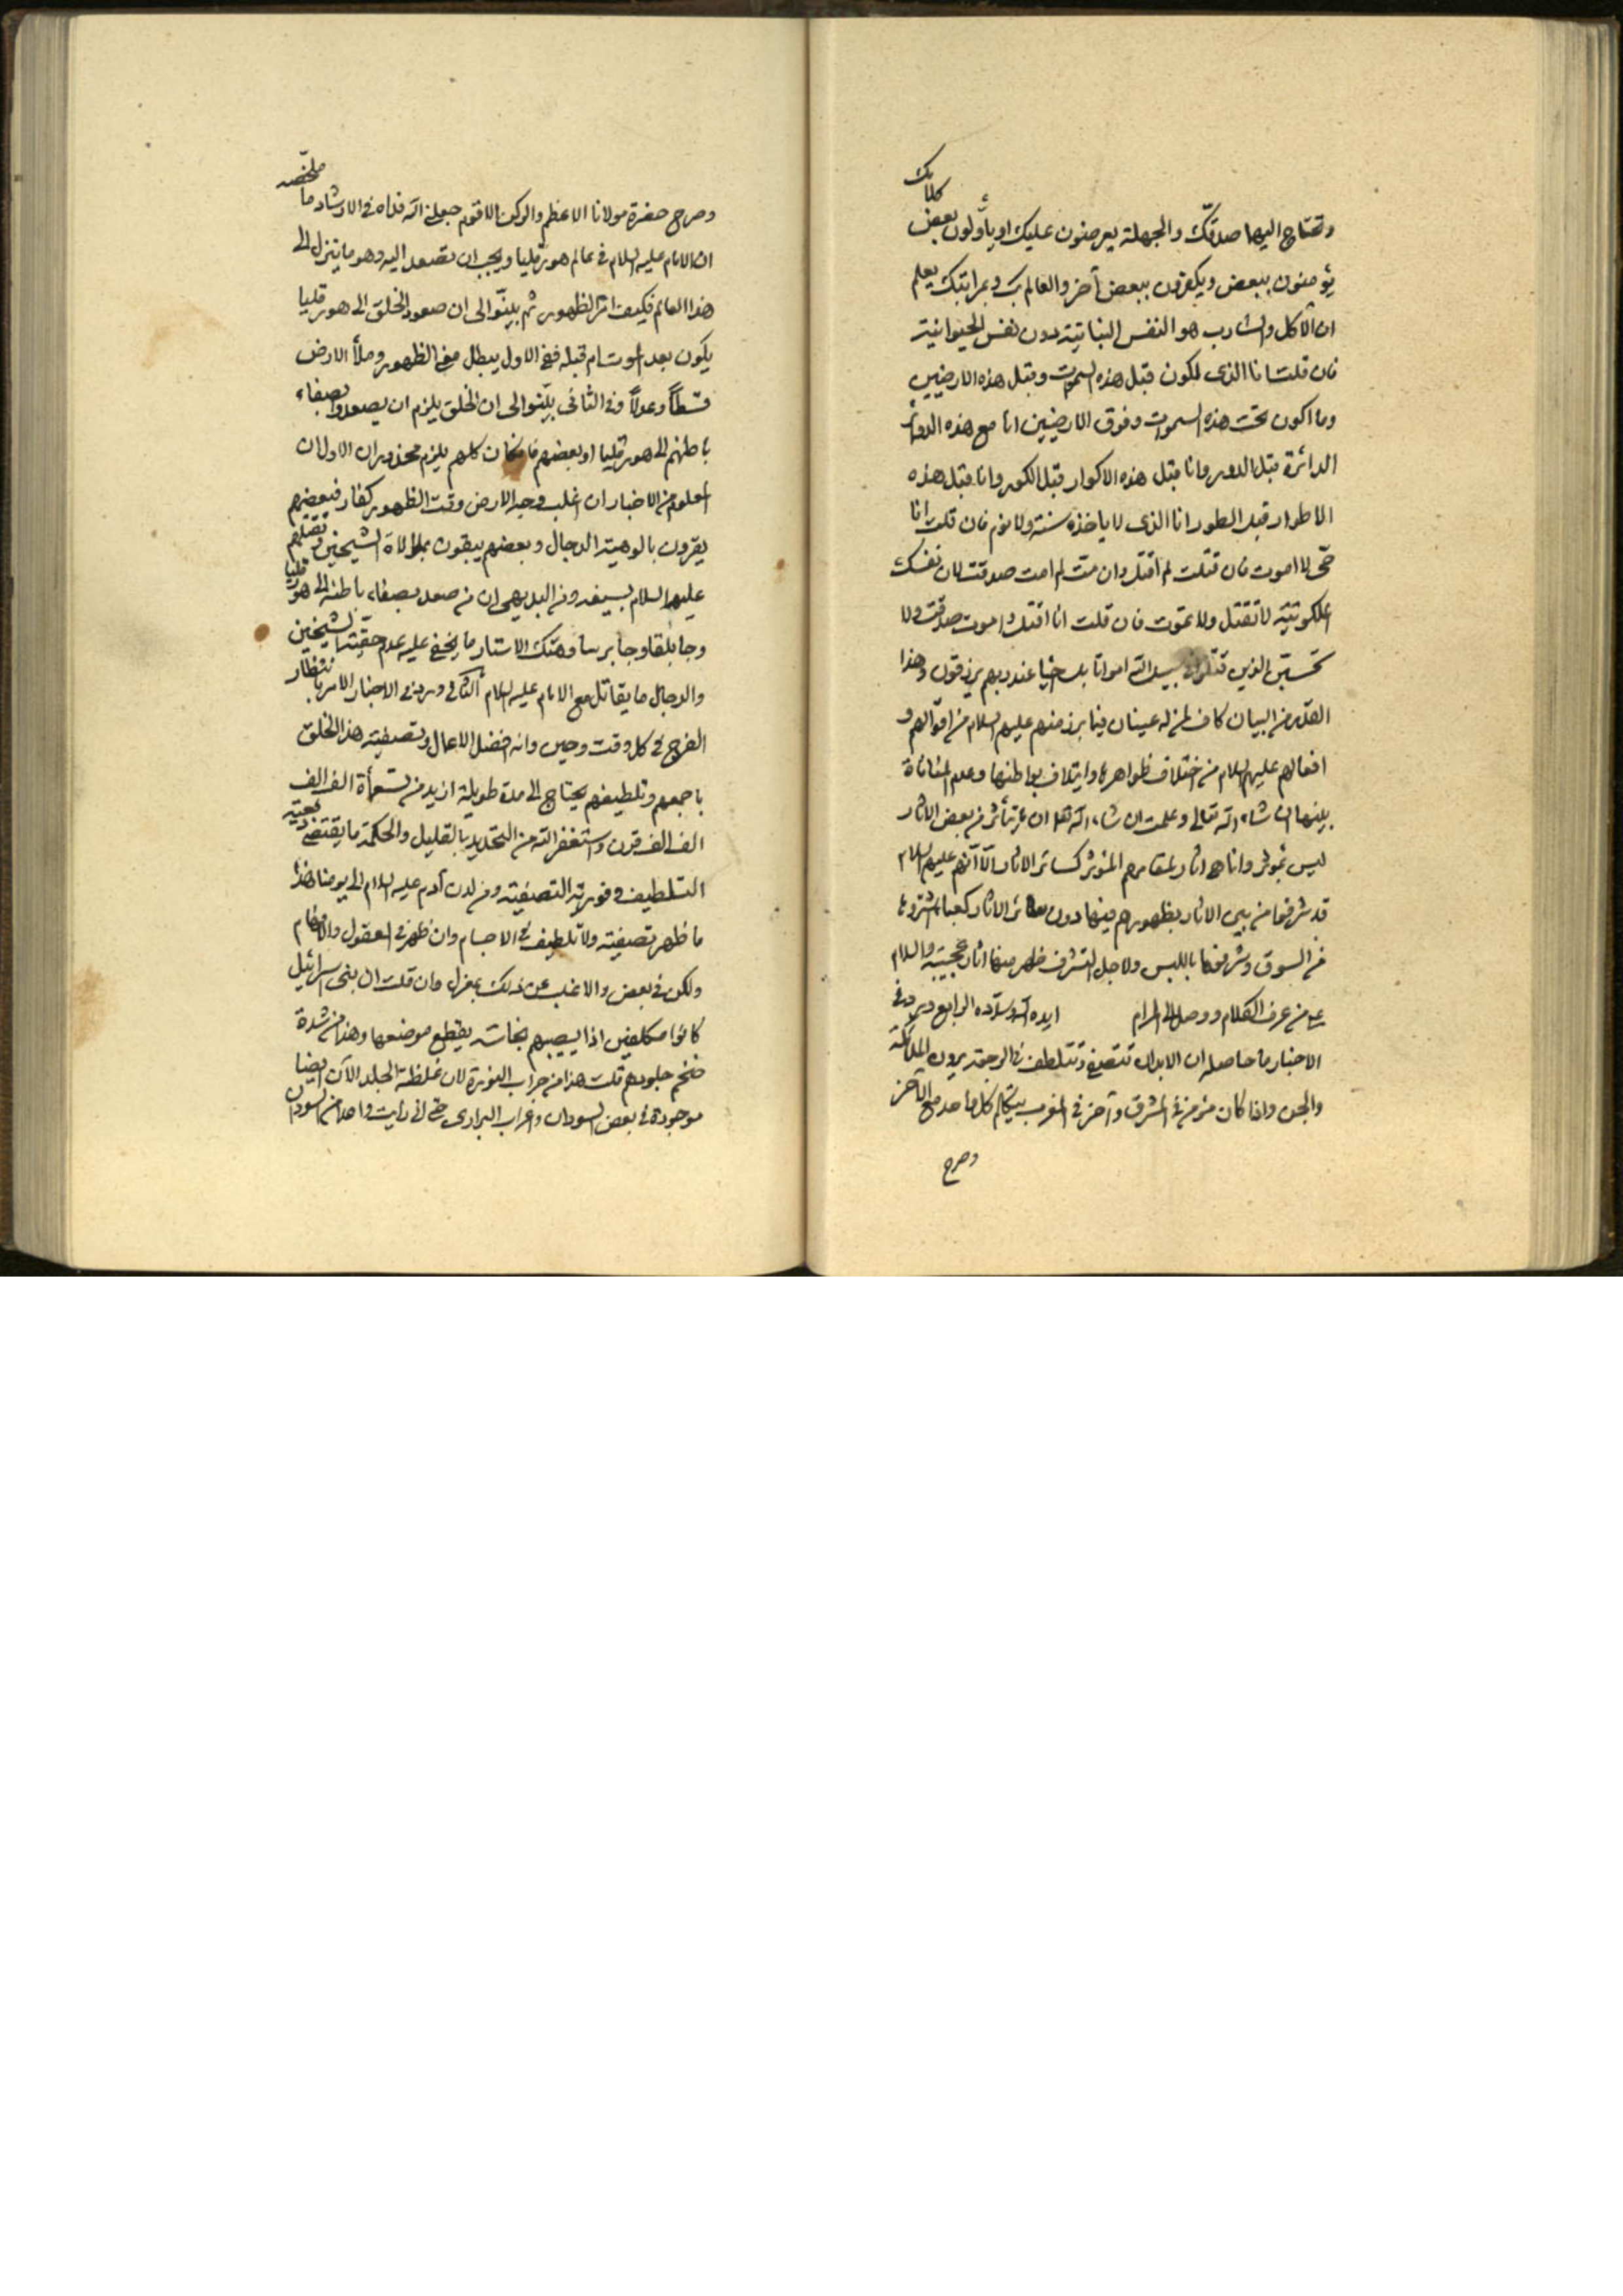 وتحتاج اليها صدقتك والجهلة يعرضون عليك او يأولون بعض كلامك
يؤمنون ببعض ويكفرون ببعض آخر والعالم بك وبمراتبك يعلم
ان الآكل والشارب هو النفس النباتية دون نفس الحيوانية
فان قلت انا الذى اكون قبل هذه السموات وقبل هذه الارضين
وما اكون تحت هذه السموات وفوق الارضين انا مع هذه الدوائر
الدائرة قبل الدور وانا قبل هذه الاكوار قبل الكور وانا قبل هذه
الاطوار قبل الطور انا الذى لا ياخذه سنة ولا نوم فان قلت انا
حى لا اموت فان قتلت لم اقتل وان مت لم امت صدقت لان نفسك
الملكوتية لا تقتل ولا تموت فان قلت انا اقتل واموت صدقت ولا
تحسبن الذين قتلوا فى سبيل الله امواتا بل احيا عند ربهم يرزقون وهذا
القدر من البيان كاف لمن له عينان فيما برز منهم عليهم السلام من اقوالهم و
افعالهم عليهم السلام من اختلاف ظواهرها وايتلاف بواطنها وعدم المنافاة
بينها ان شاء الله تعالى وعلمت ان شاء الله ان تأثر من بعض الاثار
ليس بمؤثر وانما هو اثار لمقامهم المؤثر كسائر الاثار الا انهم عليهم السلام
قد شرفوا من بين الاثار بظهورهم فيها دون سائر الاثار كعباء تشتروها
من السوق وشرفوها باللبس ولاجل التشرف ظهر منها اثار عجيبة والسلام
على من عرف الكلام ووصل الى المرام ايده الله وسدده الرابع ورد فى
الاخبار ما حاصله ان الابدان تتصفى وتتلطف فى الرجعة يرون الملائكة
والجن واذا كان مؤمن فى المشرق وآخر فى المغرب يتكلم كل واحد مع الآخر
وصرح
وصرح حضرة مولانا الاعظم والركن الاقوم جعلنى الله فداه فى الارشاد ما ملخصه
ان الامام عليه السلام فى عالم هورقليا ويجب ان تصعد اليه وهو ما ينزل الى
هذا العالم فكيف امر الظهور ثم بينوا الى ان صعود الخلق الى هورقليا
يكون بعد الموت ام قبله ففى الاول يبطل معنى الظهور وملأ الارض
قسطاً وعدلاً وفى الثانى بينوا الى ان الخلق يلزم ان يصعدوا بصفاء
باطنهم الى هورقليا او بعضهم فان كان كلهم يلزم محذوران الاول ان
المعلوم من الاخبار ان اغلب وجه الارض وقت الظهور كفار فبعضهم
يقرون بالوهية الدجال وبعضهم يبقون بموالاة الشيخين وتقتلهم
عليه السلام بسيفه ومن البديهى ان من صعد بصفاء باطنه الى هورقليا
وجابلقا وجابرسا وهتك الاستار ما يخفى عليه عدم حقية الشيخين
والدجال ما يقاتل مع الامام عليه السلام الثانى ورد فى الاخبار الامر بانتظار
الفرج فى كل وقت وحين وانه افضل الاعمال وتصفية هذا الخلق
باجمعهم وتلطيفهم يحتاج الى مدة طويلة ازيد من تسعمأة الف الف
الف الف قرن واستغفر الله من التحديد بالقليل والحكمة ما يقتضى
التلطيف وفورية التصفية ومن لدن آدم عليه السلام الى يومنا هذا
ما ظهر تصفية ولا تلطيف فى الاجسام وان ظهر فى العقول والافهام
ولكن فى بعض والاغلب عن ذلك بمعزل وان قلت ان بنى اسرائيل
كانوا مكلفين اذا يصيبهم نجاسة يقطع موضعها وهذا من شدة
ضخم جلودهم قلت هذا من جراب النورة لان غلظة الجلد الآن ايضا
موجودة فى بعض السودان واعراب البرارى حتى انى رأيت واحدا من السودان